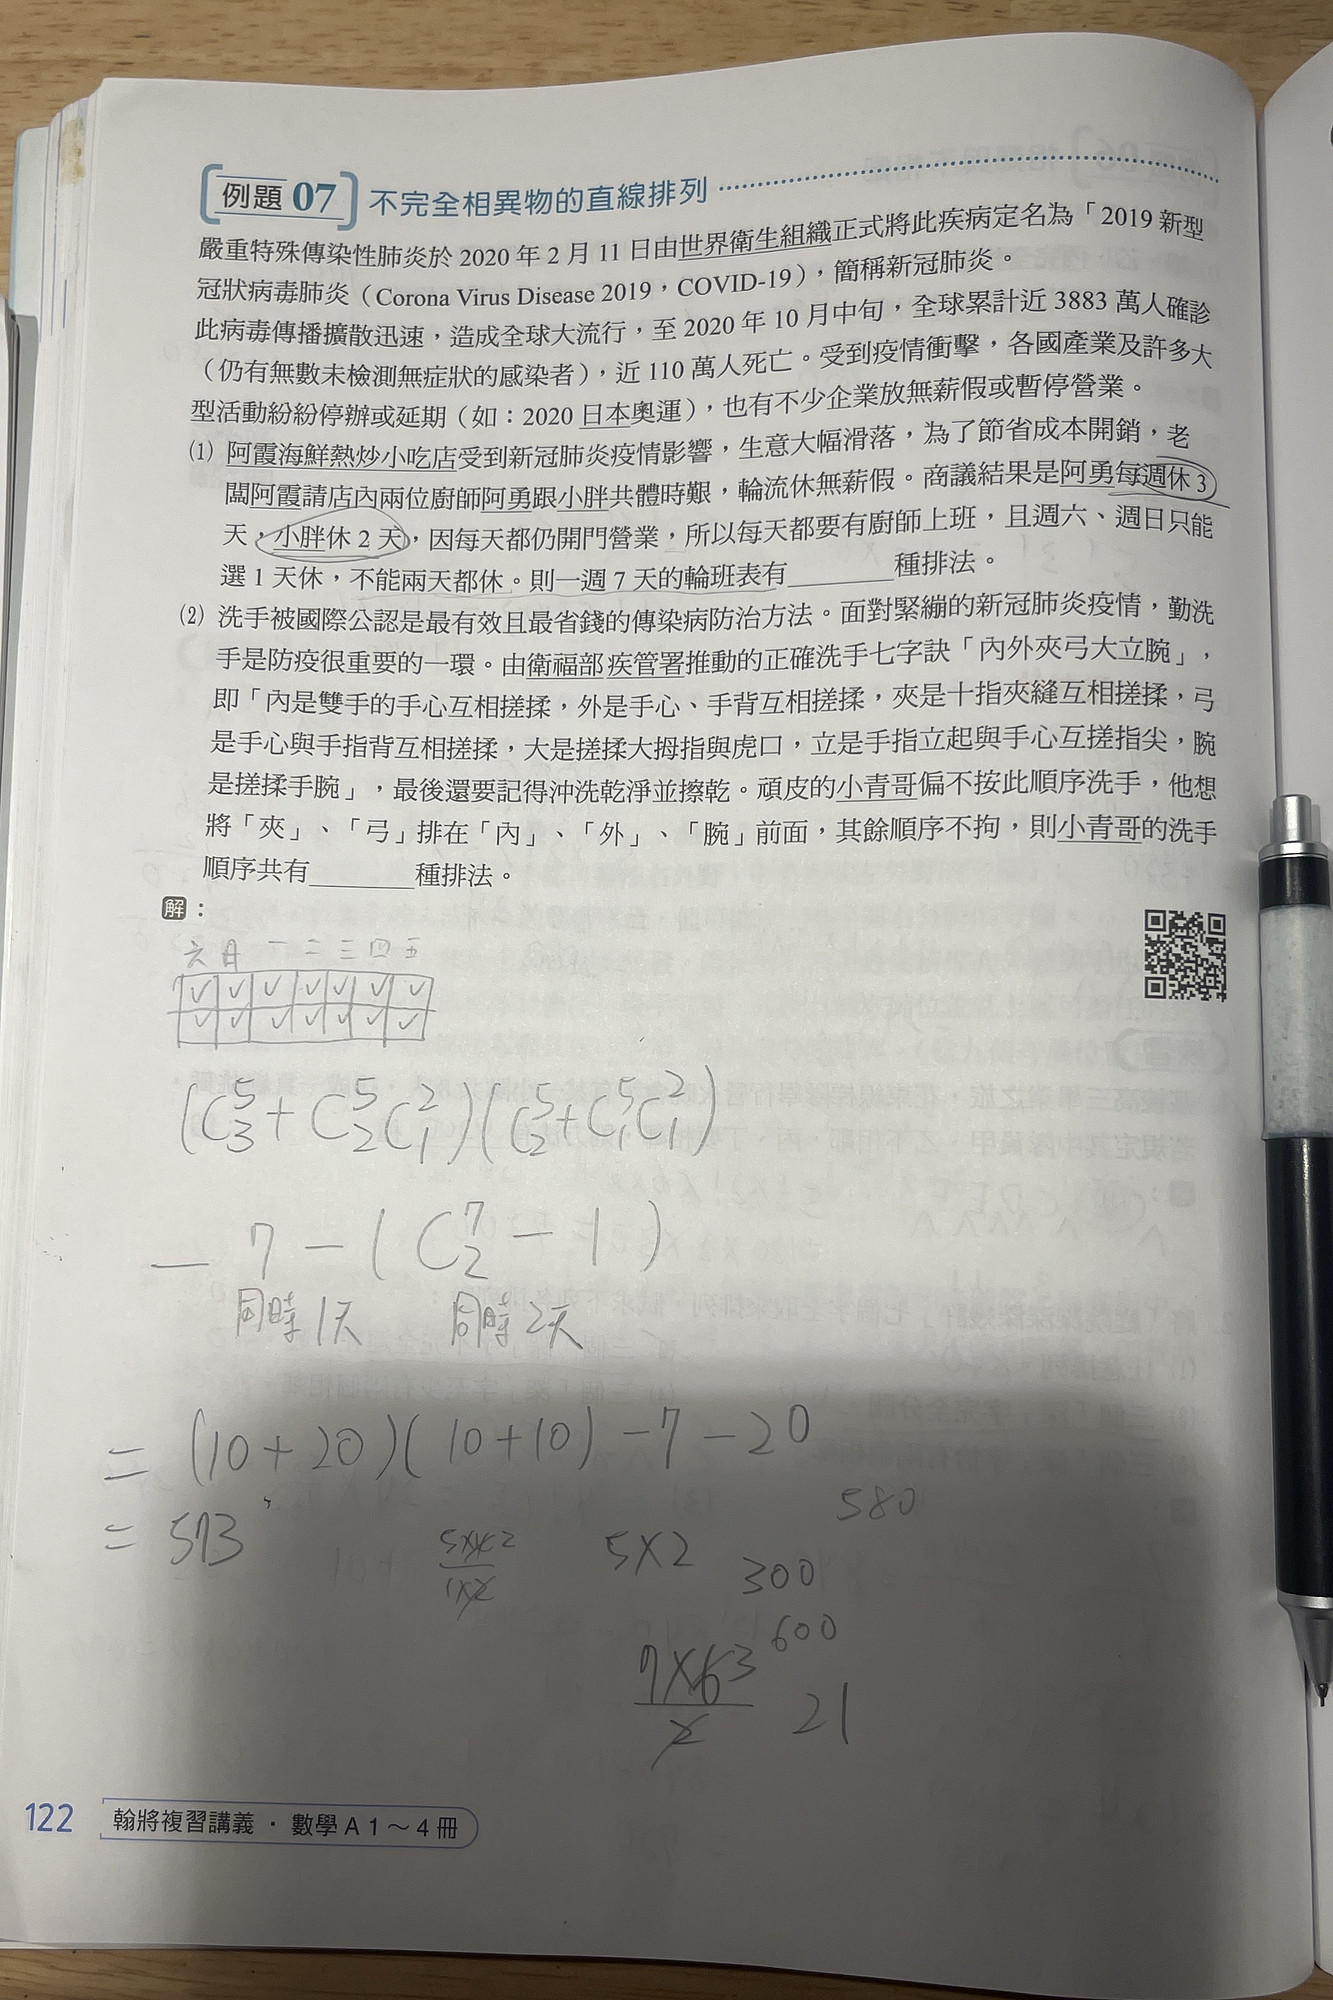 例題 07 不完全相異物的直線排列
嚴重特殊傳染性肺炎於 2020 年 2 月 11 日由世界衛生組織正式將此疾病定名為「2019 新型
冠狀病毒肺炎（Corona Virus Disease 2019，COVID-19），簡稱新冠肺炎。
此病毒傳播擴散迅速，造成全球大流行，至 2020 年 10 月中旬，全球累計近 3883 萬人確診
（仍有無數未檢測無症狀的感染者），近 110 萬人死亡。受到疫情衝擊，各國產業及許多大
型活動紛紛停辦或延期（如：2020 日本奧運），也有不少企業放無薪假或暫停營業。
(1) 阿霞海鮮熱炒小吃店受到新冠肺炎疫情影響，生意大幅滑落，為了節省成本開銷，老
闆阿霞請店內兩位廚師阿勇跟小胖共體時艱，輪流休無薪假。商議結果是阿勇每週休 3
天，小胖休 2 天，因每天都仍開門營業，所以每天都要有廚師上班，且週六、週日只能
選 1 天休，不能兩天都休。則一週 7 天的輪班表有________種排法。
(2) 洗手被國際公認是最有效且最省錢的傳染病防治方法。面對緊繃的新冠肺炎疫情，勤洗
手是防疫很重要的一環。由衛福部疾管署推動的正確洗手七字訣「內外夾弓大立腕」，
即「內是雙手的手心互相搓揉，外是手心、手背互相搓揉，夾是十指夾縫互相搓揉，弓
是手心與手指背互相搓揉，大是搓揉大拇指與虎口，立是手指立起與手心互搓指尖，腕
是搓揉手腕」，最後還要記得沖洗乾淨並擦乾。頑皮的小青哥偏不按此順序洗手，他想
將「夾」、「弓」排在「內」、「外」、「腕」前面，其餘順序不拘，則小青哥的洗手
順序共有________種排法。
解：
六 日 一 二 三 四 五
✓ ✓ ✓ ✓ ✓ ✓ ✓
✓ ✓ ✓ ✓ ✓ ✓ ✓
(C⁵₃ + C⁵₂C²₁)(C⁵₂ + C⁵₁C²₁)
－ 7 － (C⁷₂ － 1)
同時1天 同時2天
= (10 + 20)(10 + 10) － 7 － 20
580
= 573
5×2
300
600
7×63
2
21
122 翰將複習講義 · 數學 A 1～4 冊